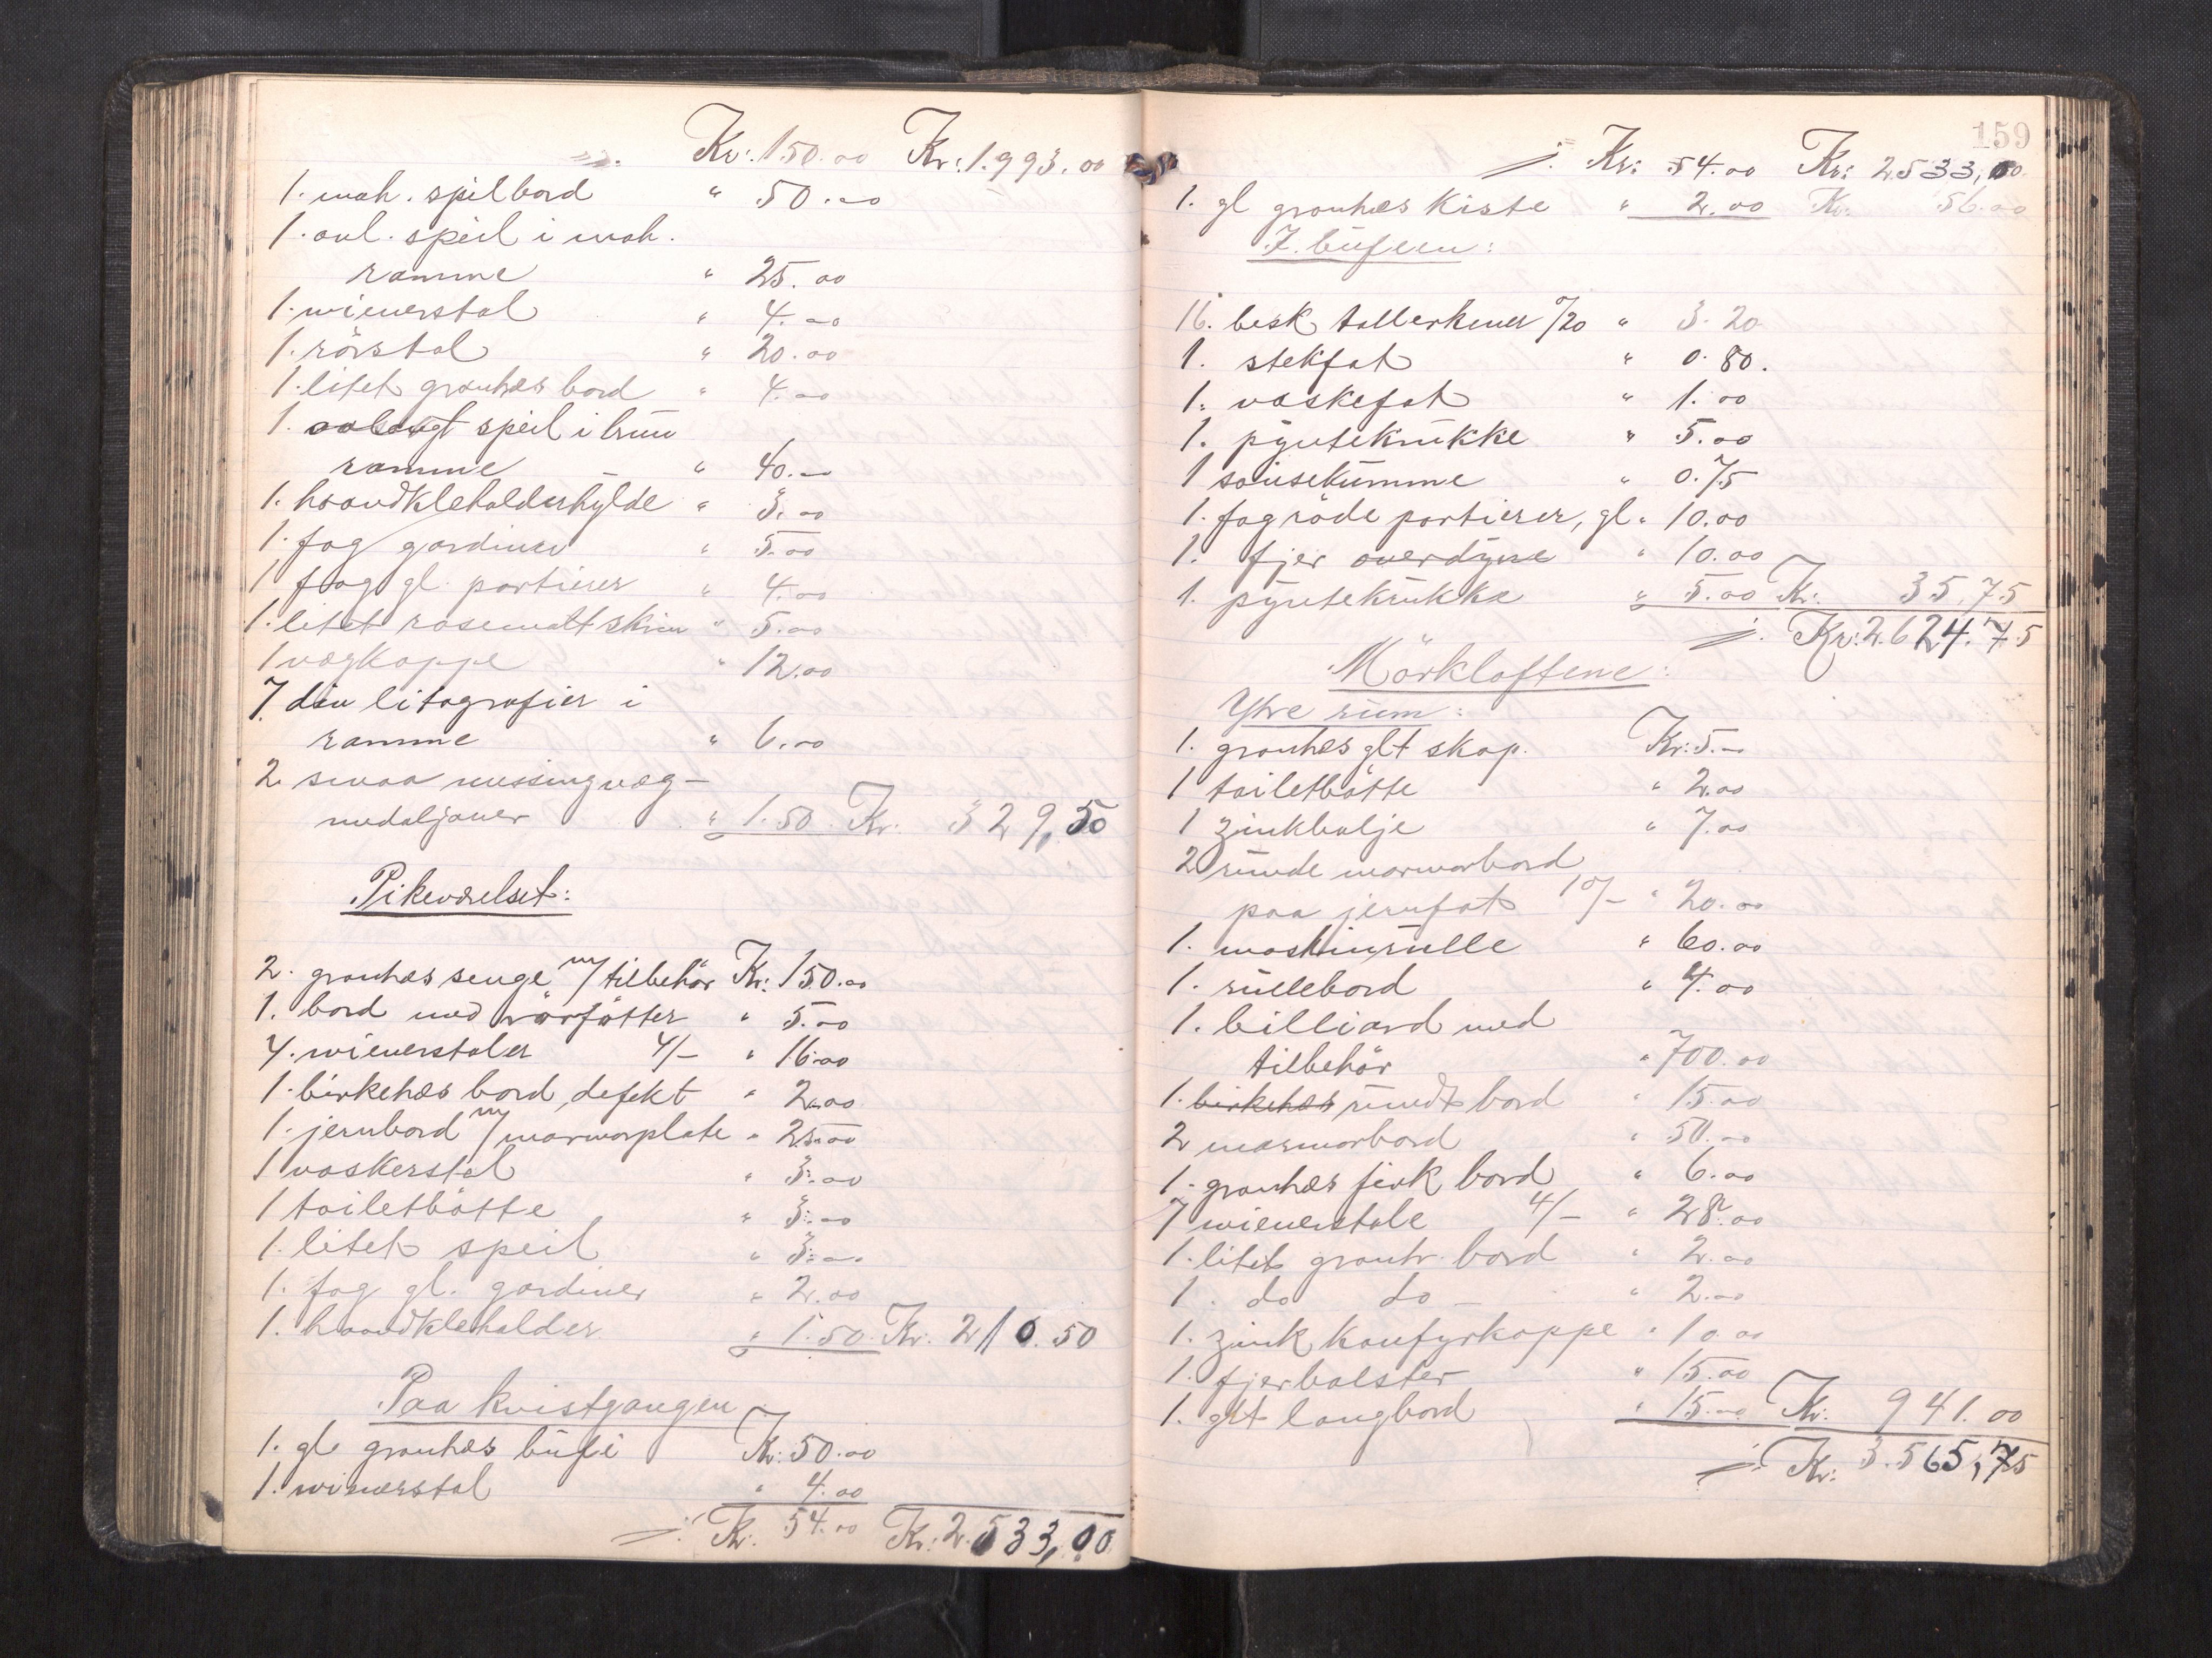 Kr: 150.00 Kr: 1.993.00
1. mah. spilbord " 50.00
1. avl. speil i mah.
ramme " 25.00
1. wienerstol " 4.00
1. rörstol " 20.00
1. litet granhæs bord " 4.00
1. avlangt speil i brun
ramme " 40.00
1. haandkleholderhylde " 3.00
1. fag gardiner " 5.00
1 fag gl. portierer " 4.00
1. litet rosemalt skrin " 5.00
1 vægkappe " 12.00
7. div litografier i
ramme " 6.00
2 smaa messingvæg-
medaljoner " 1.50 Kr. 329,50
Pikeværelset:
2. granhæs senge m/tilbehör Kr: 150.00
1. bord med rörfötter " 5.00
4. wienerstoler 4/- " 16.00
1. birkehæs bord, defekt " 2.00
1. jernbord m/marmorplate " 25.00
1 vaskerstol " 3.00
1 toiletbötte " 3.00
1. litet speil " 3.00
1. fag gl. gardiner " 2.00
1. haandkleholder " 1.50 Kr. 210.50
Paa kvistgangen
1. gl. granhæs büfé Kr: 50.00
1. wienerstol " 4.00
Kr. 54.00 Kr: 2.533,00
159
Kr: 54.00 Kr: 2533,00
1. gl granhæs kiste " 2.00 Kr. 56.00
I büfeen:
16. besk tallerkener /20 " 3.20
1. stekfat " 0.80.
1. vaskefat " 1.00
1. pyntekrükke " 5.00
1 sausekumme " 0.75
1. fag röde portierer, gl. " 10.00
1. fjer overdyne " 10.00
1. pyntekrükke " 5.00 Kr. 35,75
Kr: 2.624.75
Mörkloftene:
Ytre rüm:
1. granhæs glt skap. Kr: 5.00
1 toiletbötte " 2.00
1 zinkbalje " 7.00
2 ründe marmorbord
paa jernfot 10/- " 20.00
1. maskinrülle " 60.00
1. rüllebord " 4.00
1. billiard med
tilbehör " 700.00
1. birkehæs rundt bord " 15.00
2 marmorbord " 50.00
1. granhæs firk bord " 6.00
7 wienerstole 4/- " 28.00
1. litet granh. bord " 2.00
1. do do - " 2.00
1. zink komfyrkappe " 10.00
1. fjerbolster " 15.00
1. glt langbord " 15.00 Kr. 941.00
Kr: 3.565,75